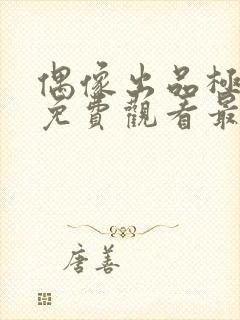 偶像出品極
免費觀看最
唐善